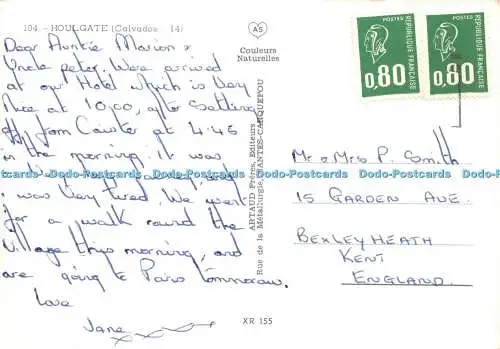 104 - HOULGATE (Calvados - 14)
Dear Aunkie Marion &
Uncle Peter, Were arrived
at our Hotel which is Very
Nice at 10.00, after Setting
off from Caister at 4.45
in the morning, it was
and
i was Very tired. We went
for a walk round the
village this morning, and
are going to Paris tomorrow.
love
Jane xxx
AS
Couleurs
Naturelles
ARTAUD Frères, Editeurs
Rue de la Métallurgie, NANTES-CARQUEFOU
XR 155
POSTES
REPUBLIQUE FRANÇAISE
0,80
POSTES
REPUBLIQUE FRANÇAISE
0,80
Mr & Mrs P. Smith
15 GARDEN AVE.
BEXLEY HEATH
KENT
ENGLAND.
Dodo-Postcards Dodo-Postcards Dodo-Postcards Dodo-Postcards Dodo-Postcards